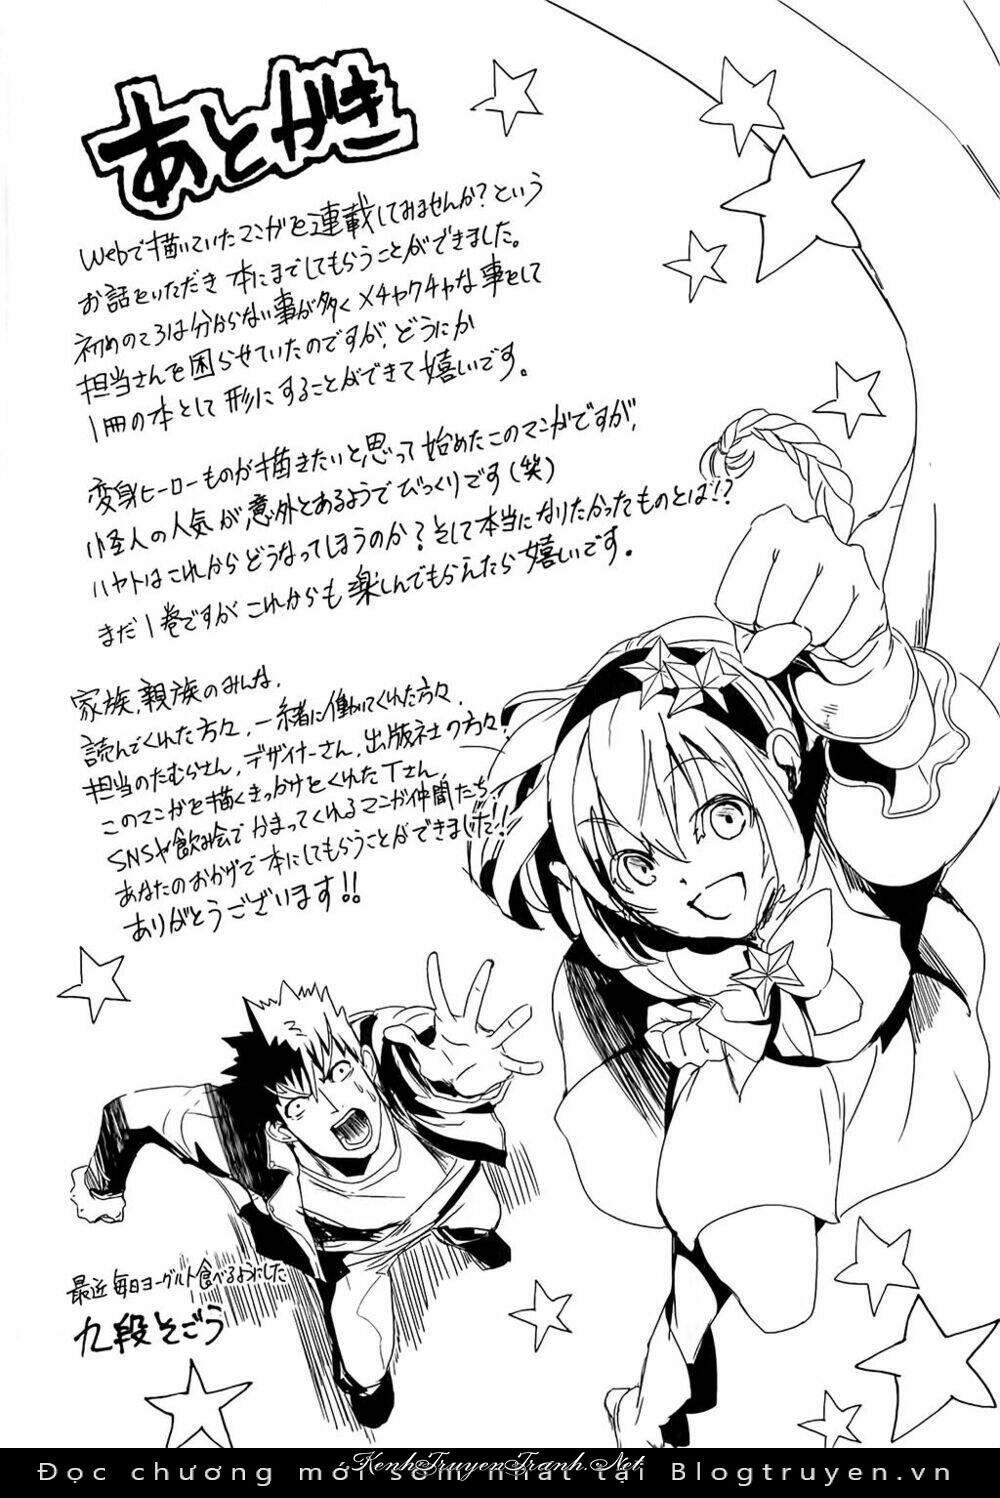 あとがき
Webで描いていたマンガを連載してみませんか？という
お話をいただき 本にまでしてもらうことができました。
初めのころは分からない事が多く メチャクチャな事をして
担当さんを困らせていたのですが、どうにか
1冊の本として 形にすることができて嬉しいです。
変身ヒーローものが描きたいと思って始めたこのマンガですが、
怪人の人気が意外とあるようでびっくりです(笑)
ハヤトはこれからどうなってしまうのか？そして本当になりたかったものとは!?
まだ1巻ですがこれからも楽しんでもらえたら嬉しいです。
家族、親族のみんな、
読んでくれた方々、一緒に働いてくれた方々、
担当のたむらさん、デザイナーさん、出版社の方々、
このマンガを描くきっかけをくれたTさん、
SNSや飲み会でかまってくれるマンガ仲間たち、
あなたのおかげで本にしてもらうことができました!!
ありがとうございます!!
最近毎日ヨーグルト食べるようにした
九段そごう
KenhTruyenTranh.Net
Đọc chương mới sớm nhất tại Blogtruyen.vn